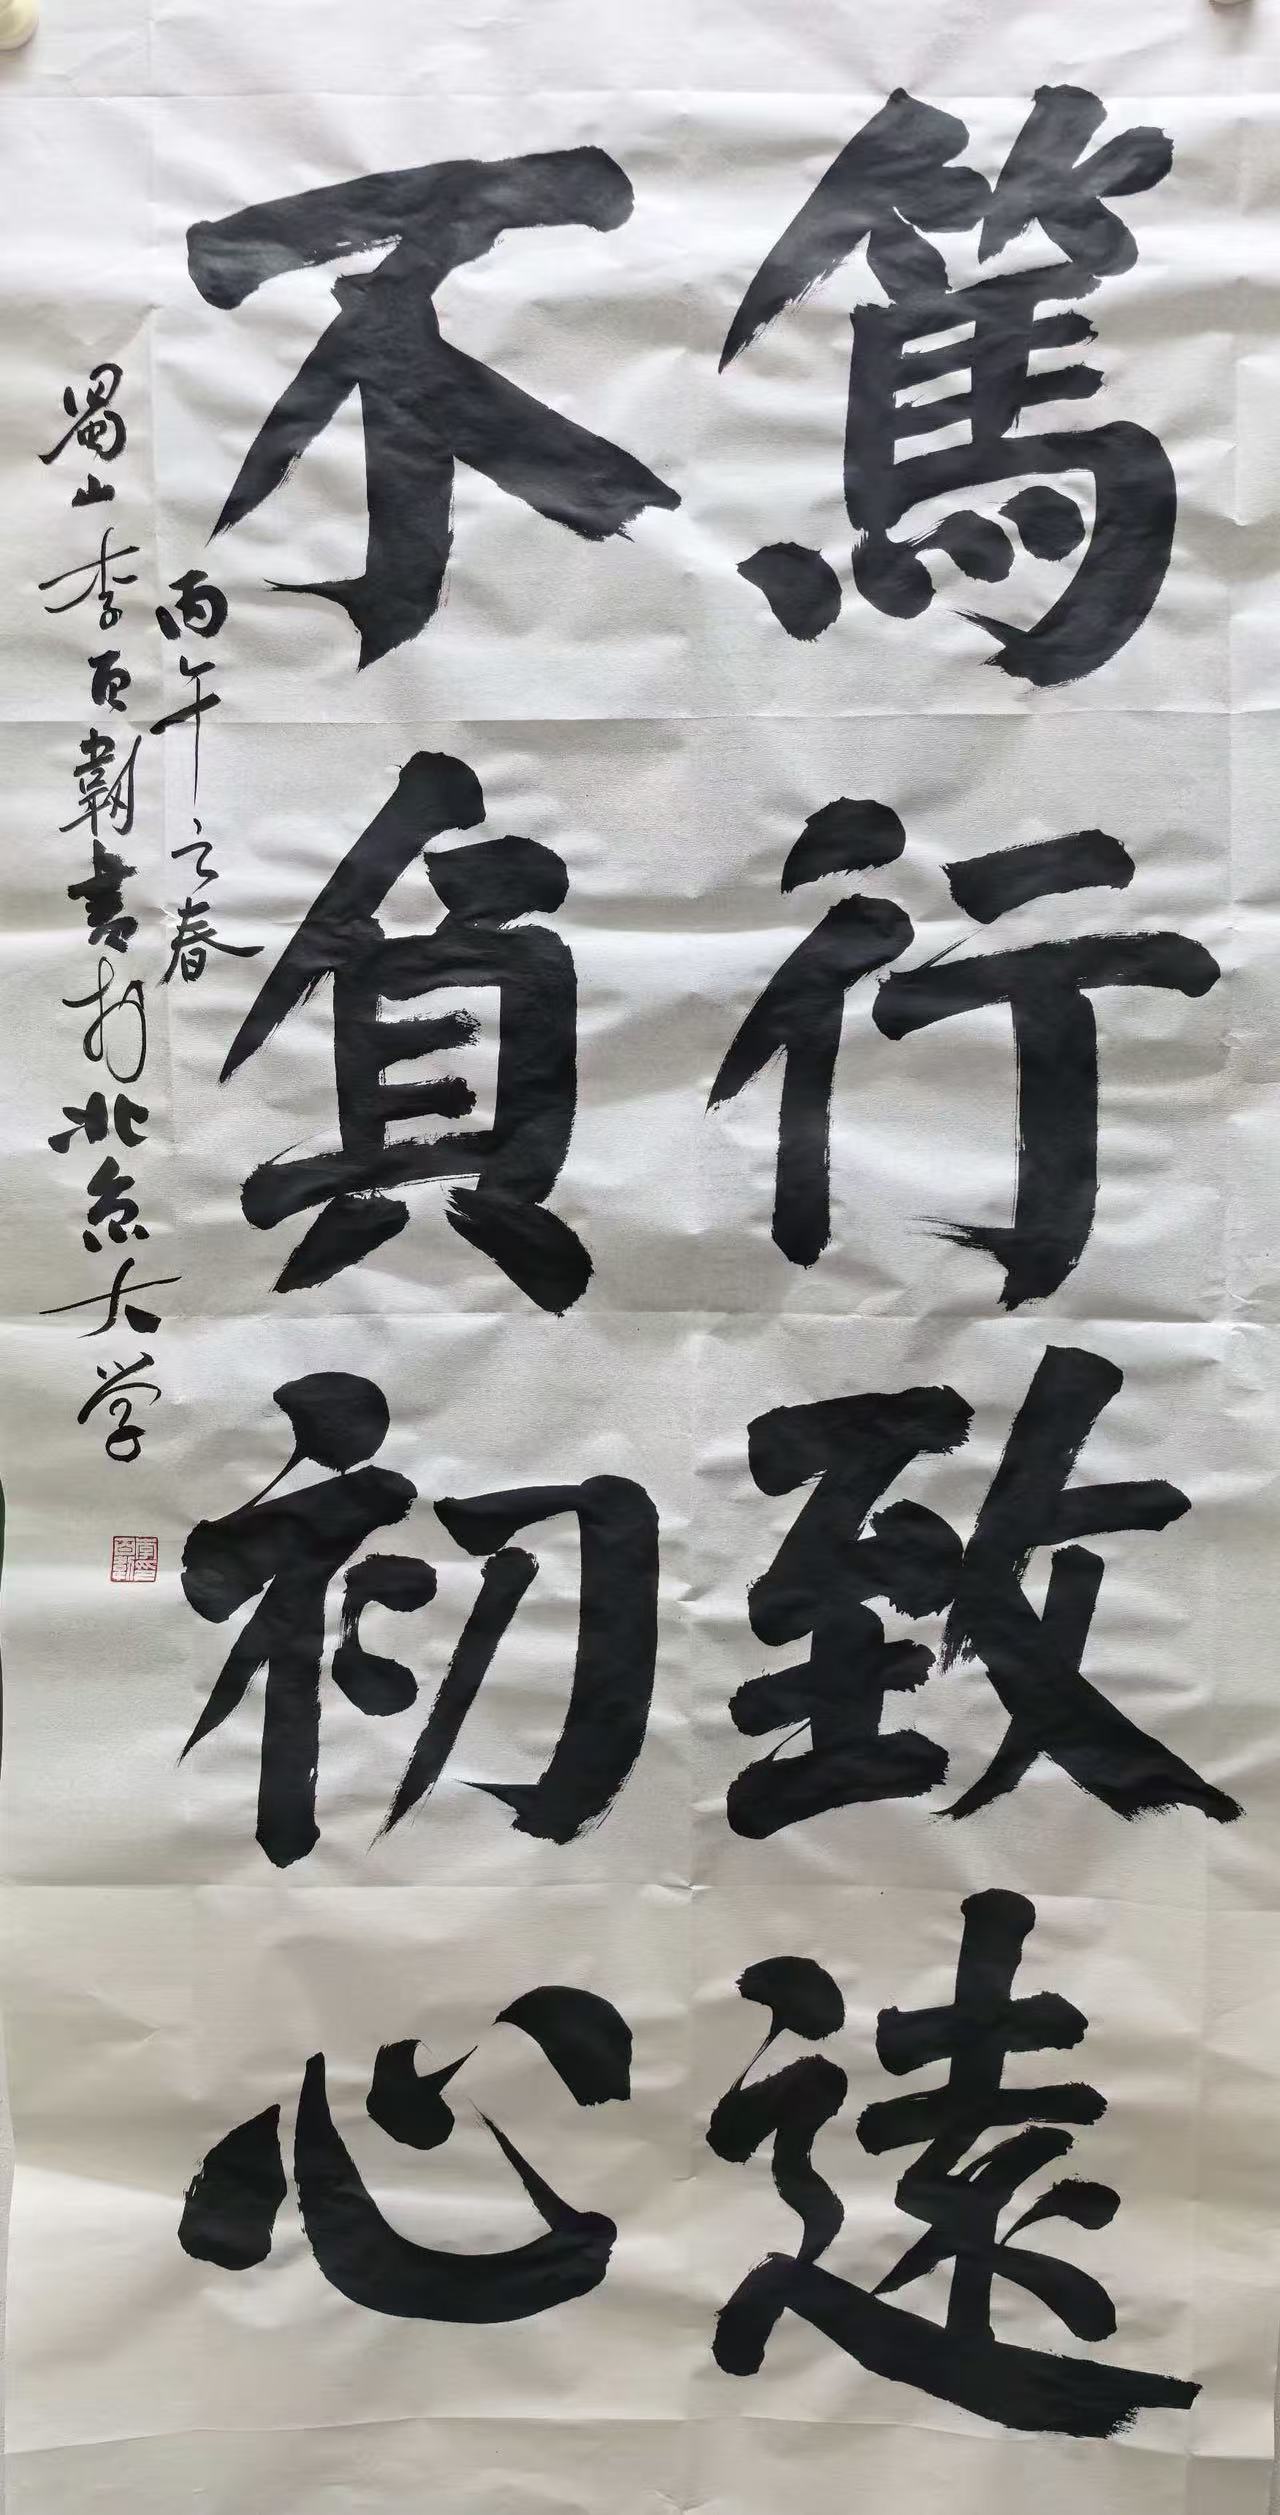 篤行致遠
不負初心
丙午之春
蜀山李百韌書於北京大学